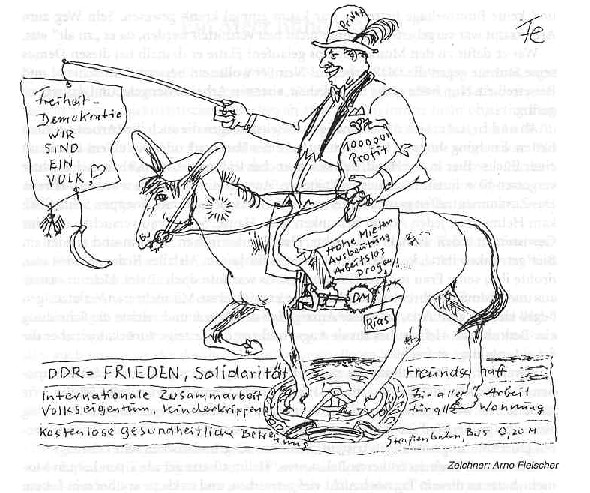 Fe
Freiheit -
Demokratie
WIR
SIND
EIN
VOLK!
Profit
Hohe Mieten
Ausbeutung
Arbeitslos
Drogen
DM
Rias
DDR = FRIEDEN, Solidarität Freundschaft
Internationale Zusammarbeit Für alle Arbeit
Volkseigentum, Kinderkrippen für alle Wohnung
Kostenlose gesundheitliche Betreuung Straßenbahn Bus 0,20 M
Zeichner: Arno Fleischer